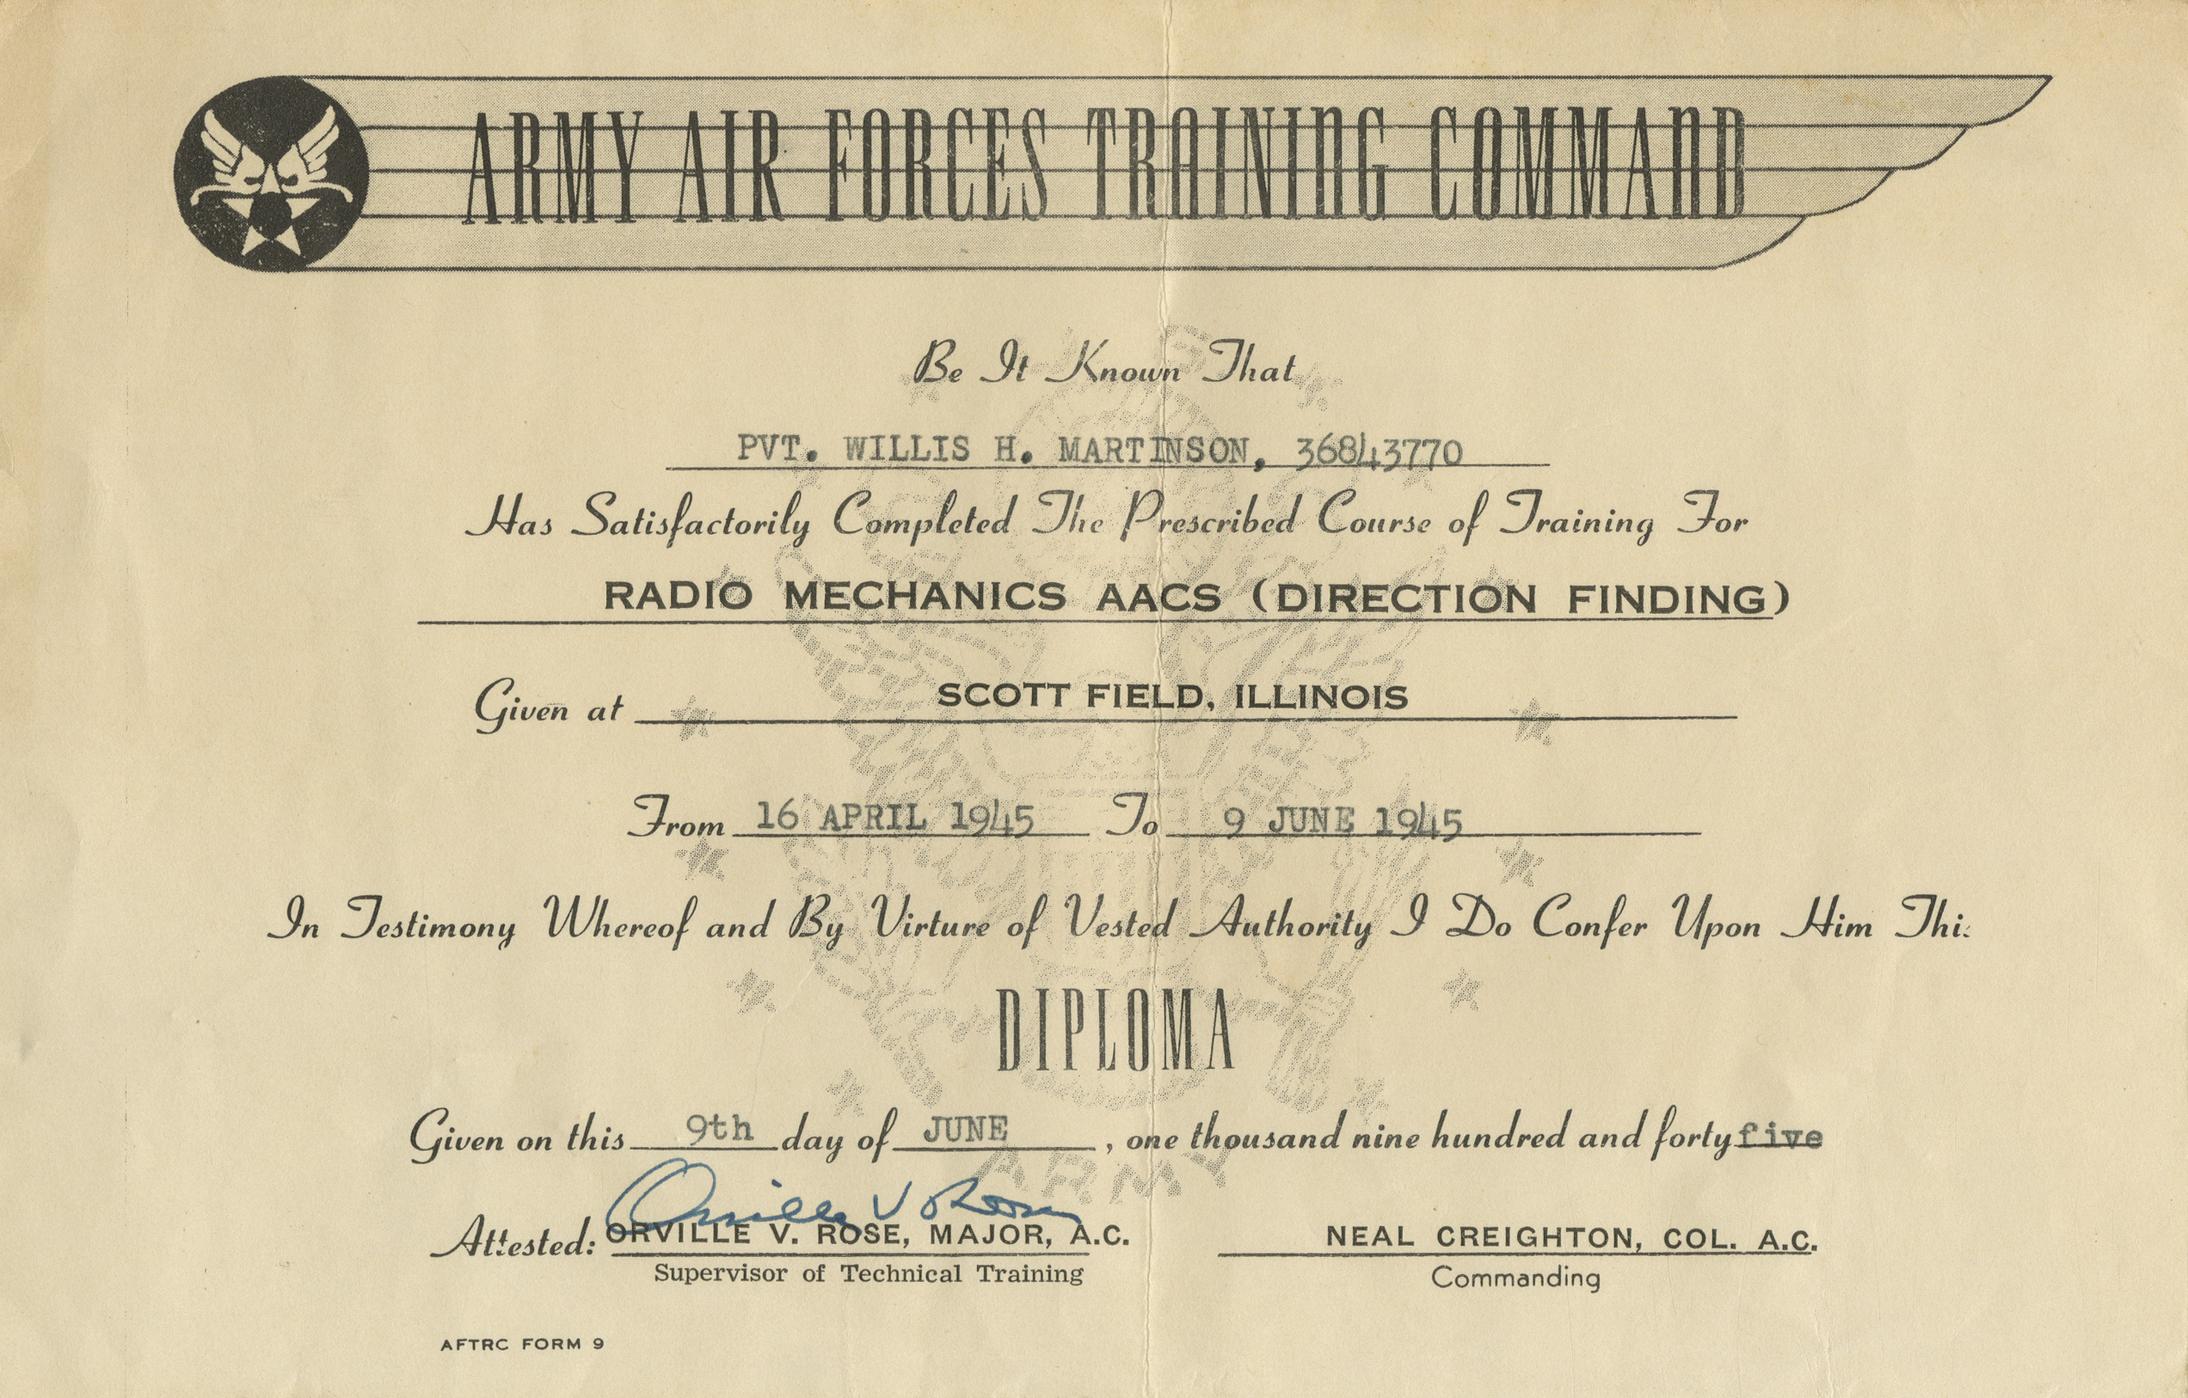 ARMY AIR FORCES TRAINING COMMAND
Be It Known That
PVT. WILLIS H. MARTINSON, 36843770
Has Satisfactorily Completed The Prescribed Course of Training For
RADIO MECHANICS AACS (DIRECTION FINDING)
Given at SCOTT FIELD, ILLINOIS
From 16 APRIL 1945 To 9 JUNE 1945
In Testimony Whereof and By Virture of Vested Authority I Do Confer Upon Him This
DIPLOMA
Given on this 9th day of JUNE, one thousand nine hundred and forty five
ARMY
Orville V Rose
Attested: ORVILLE V. ROSE, MAJOR, A.C. NEAL CREIGHTON, COL. A.C.
Supervisor of Technical Training Commanding
AFTRC FORM 9